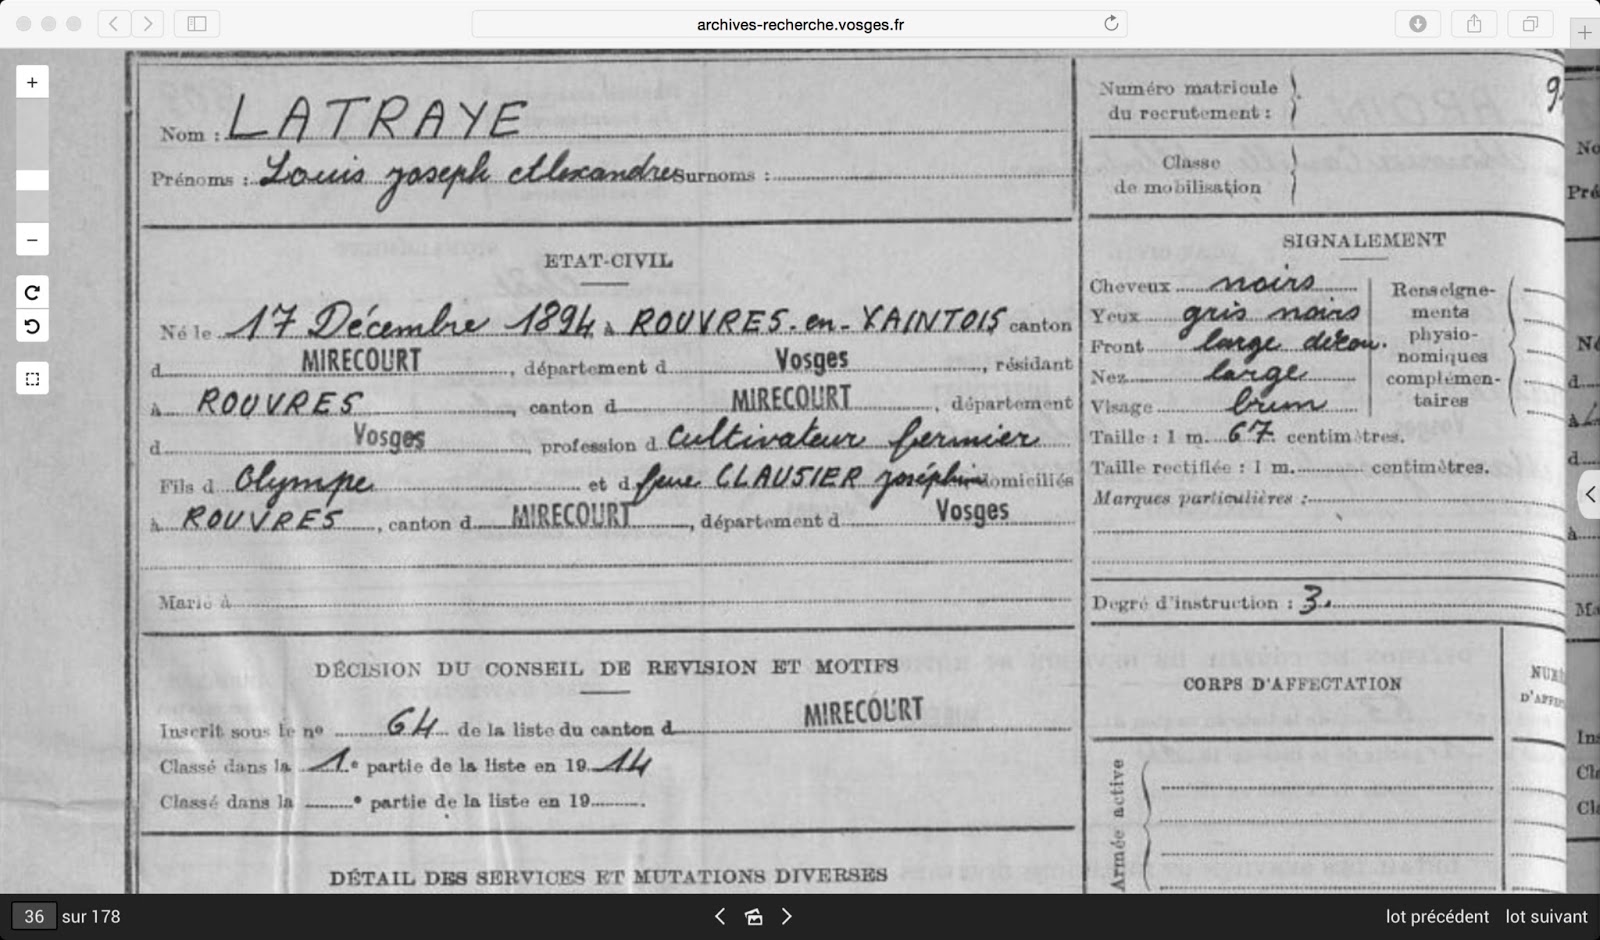 archives-recherche.vosges.fr
Nom : LATRAYE
Prénoms : Louis Joseph Alexandre Surnoms :
ETAT-CIVIL
Né le 17 Décembre 1894 à ROUVRES-en-XAINTOIS canton
d MIRECOURT, département d Vosges, résidant
à ROUVRES, canton d MIRECOURT, département
d Vosges, profession d cultivateur fermier
Fils d Olympe et d feue CLAUSIER Joséphine domiciliés
à ROUVRES, canton d MIRECOURT, département d Vosges
Marié à
DÉCISION DU CONSEIL DE REVISION ET MOTIFS
Inscrit sous le nº 64 de la liste du canton d MIRECOURT
Classé dans la 1.e partie de la liste en 1914
Classé dans la e partie de la liste en 19 .
DÉTAIL DES SERVICES ET MUTATIONS DIVERSES
Numéro matricule
du recrutement : 9
Classe
de mobilisation
SIGNALEMENT
Cheveux noirs
Yeux gris noirs
Front large décou.
Nez large
Visage brun
Renseigne-
ments
physio-
nomiques
complémen-
taires
Taille : 1 m. 67 centimètres.
Taille rectifiée : 1 m. centimètres.
Marques particulières :
Degré d'instruction : 3.
CORPS D'AFFECTATION
NUM
D'AFFE
Armée active
No
Pré
Né
d
à
d
à
Ma
Ins
Cla
Cla
36 sur 178
lot précédent lot suivant